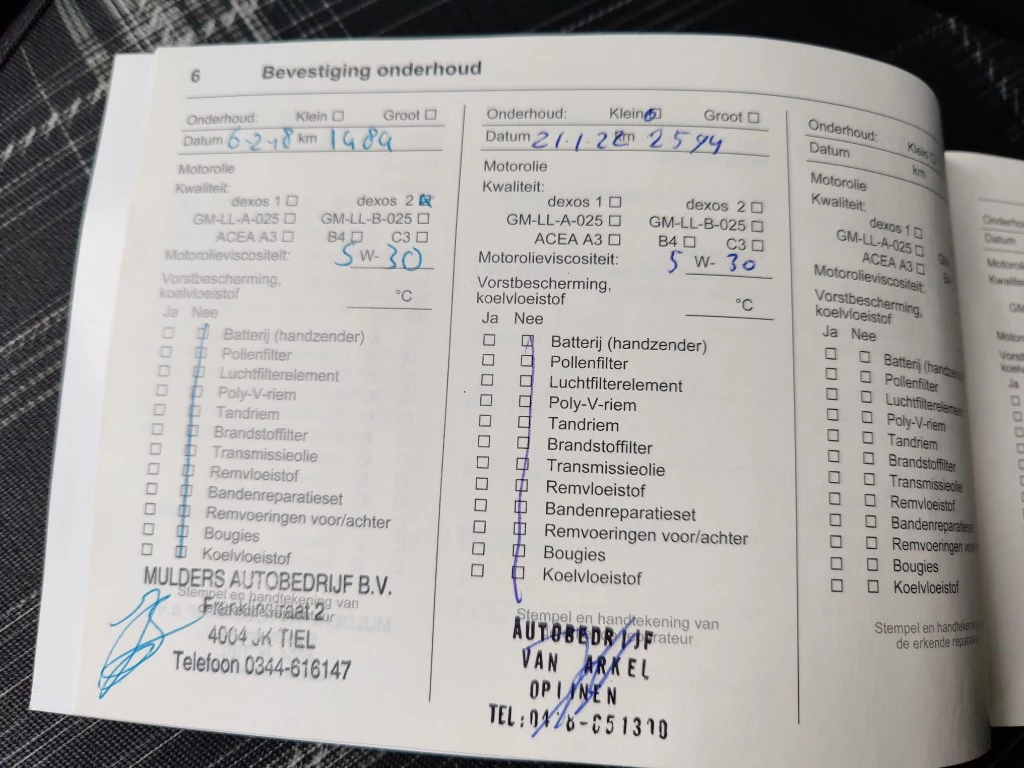 6 Bevestiging onderhoud
Onderhoud: Klein Groot
Datum 6-2-18 km 1484
Motorolie
Kwaliteit:
dexos 1 dexos 2
GM-LL-A-025 GM-LL-B-025
ACEA A3 B4 C3
Motorolieviscositeit: 5 W- 30
Vorstbescherming,
koelvloeistof °C
Ja Nee
Batterij (handzender)
Pollenfilter
Luchtfilterelement
Poly-V-riem
Tandriem
Brandstoffilter
Transmissieolie
Remvloeistof
Bandenreparatieset
Remvoeringen voor/achter
Bougies
Koelvloeistof
Stempel en handtekening van
MULDERS AUTOBEDRIJF B.V.
4004 JK TIEL
Telefoon 0344-616147
Onderhoud: Klein Groot
Datum 21.1.22 km 2594
Motorolie
Kwaliteit:
dexos 1 dexos 2
GM-LL-A-025 GM-LL-B-025
ACEA A3 B4 C3
Motorolieviscositeit: 5 W- 30
Vorstbescherming,
koelvloeistof °C
Ja Nee
Batterij (handzender)
Pollenfilter
Luchtfilterelement
Poly-V-riem
Tandriem
Brandstoffilter
Transmissieolie
Remvloeistof
Bandenreparatieset
Remvoeringen voor/achter
Bougies
Koelvloeistof
Stempel en handtekening van
AUTOBEDRIJF
VAN ARKEL
OPIJNEN
TEL:
Onderhoud: Klein
Datum km
Motorolie
Kwaliteit:
dexos 1
GM-LL-A-025
ACEA A3
Motorolieviscositeit:
Vorstbescherming,
koelvloeistof
Ja Nee
Batterij
Pollenfilter
Luchtfilterelement
Poly-V-riem
Tandriem
Brandstoffilter
Transmissieolie
Remvloeistof
Bandenreparatieset
Remvoeringen
Bougies
Koelvloeistof
Stempel en
de erkende